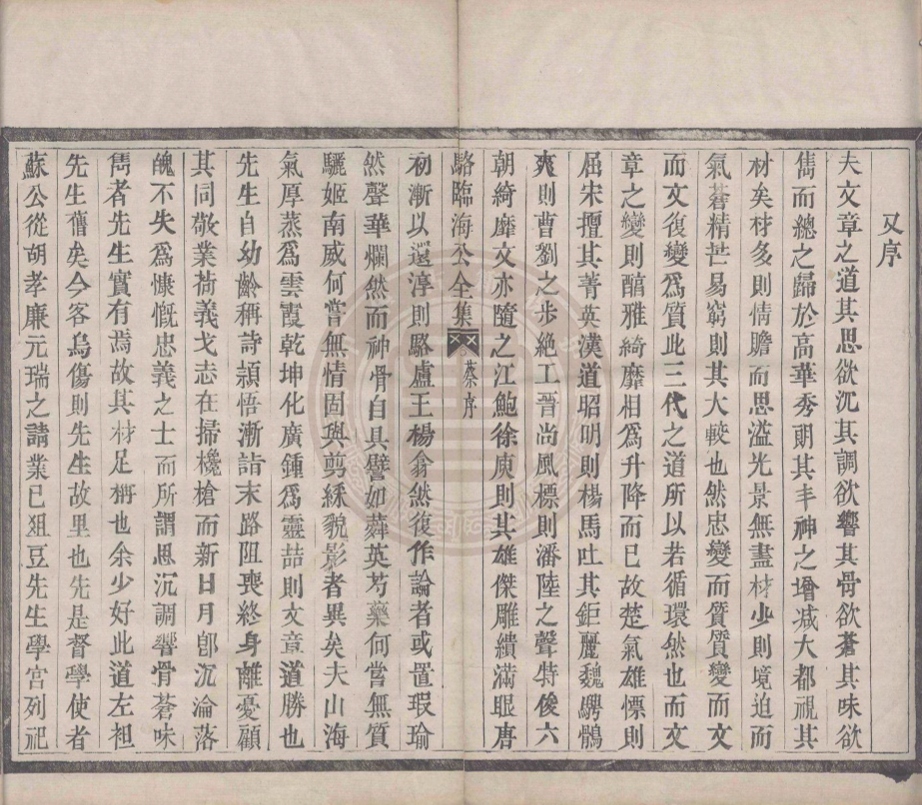 又序
夫文章之道其思欲沉其調欲響其骨欲蒼其味欲
雋而總之歸於高華秀朗其丰神之增減大都視其
材矣材多則情贍而思溢光景無盡材少則境迫而
氣蒼精芒易窮則其大較也然忠變而質質變而文
而文復變爲質此三代之道所以若循環然也而文
章之變則醇雅綺靡相爲升降而已故楚氣雄慓則
屈宋擅其菁英漢道昭明則楊馬吐其鉅麗魏騁鶻
爽則曹劉之步絶工晉尚風標則潘陸之聲特俊六
朝綺靡文亦隨之江鮑徐庾則其雄傑雕繢滿眼唐
駱臨海公全集 蔡序
初漸以還淳則駱盧王楊翕然復作論者或置瑕瑜
然聲華爛然而神骨自具譬如蕣英芍藥何嘗無質
驪姬南威何嘗無情固與剪綵貌影者異矣夫山海
氣厚蒸爲雲霞乾坤化廣鍾爲靈喆則文章道勝也
先生自幼齡稱詩頴悟漸詣末路阻喪終身離憂顧
其同敬業荷義戈志在掃欃槍而新日月卽沉淪落
醜不失爲慷慨忠義之士而所謂思沉調響骨蒼味
雋者先生實有焉故其材足稱也余少好此道左袒
先生舊矣今客烏傷則先生故里也先是督學使者
蘇公從胡孝廉元瑞之請業已俎豆先生學宫列祀